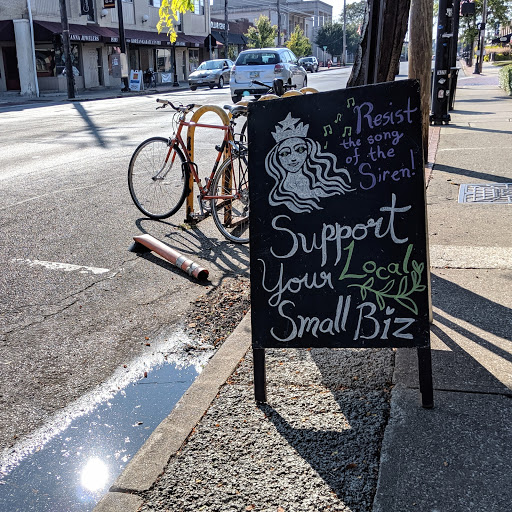 ANNA JEWELERS
Resist
the song
of the
Siren!
Support
Your Local
Small Biz